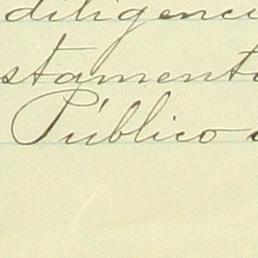 diligenci
stamento
Público